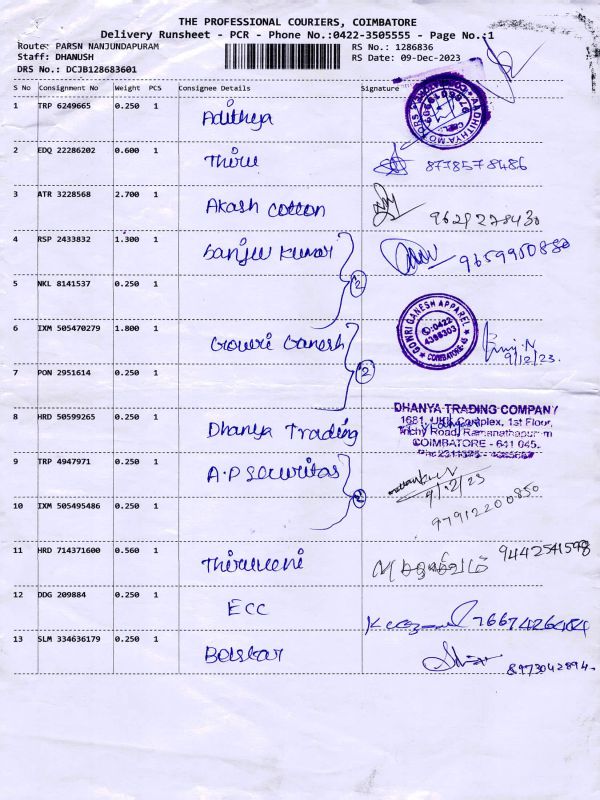 THE PROFESSIONAL COURIERS, COIMBATORE
Delivery Runsheet - PCR - Phone No.:0422-3505555 - Page No.:1
Route: PARSN NANJUNDAPURAM
Staff: DHANUSH
DRS No.: DCJB128683601
RS No.: 1286836
RS Date: 09-Dec-2023
S No Consignment No Weight PCS Consignee Details Signature
1 TRP 6249665 0.250 1 Adithya
AADHITHYA MOTORS
2 EDQ 22286202 0.600 1 Thiru 8778578486
3 ATR 3228568 2.700 1 Akash cotton 9629278430
4 RSP 2433832 1.300 1 Sanjw Kumar 9659950880
5 NKL 8141537 0.250 1 2
6 IXM 505470279 1.800 1 Gowri Ganesh
GOWRI GANESH APPAREL
0422
4366303
COIMBATORE-45
9/12/23.
7 PON 2951614 0.250 1 2
8 HRD 50599265 0.250 1 Dhanya Trading
DHANYA TRADING COMPANY
1681, Complex, 1st Floor,
Trichy Road, Ramanathapuram
COIMBATORE - 641 045.
9 TRP 4947971 0.250 1 A.P Securitas
9/12/23
10 IXM 505495486 0.250 1 2 97912200850
11 HRD 714371600 0.560 1 Thirumeni 9442541598
12 DDG 209884 0.250 1 ECC 7667426484
13 SLM 334636179 0.250 1 Belstar 8973042894